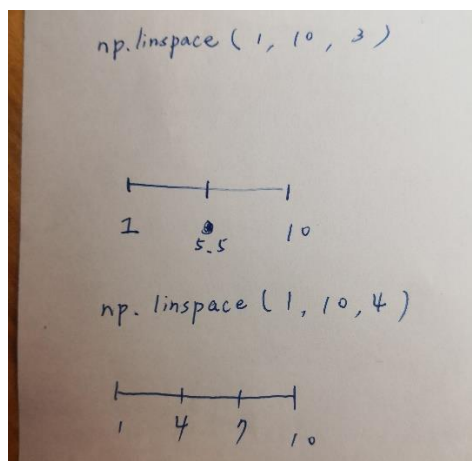 np.linspace (1, 10, 3)
1 5.5 10
np. linspace (1, 10, 4)
1 4 7 10